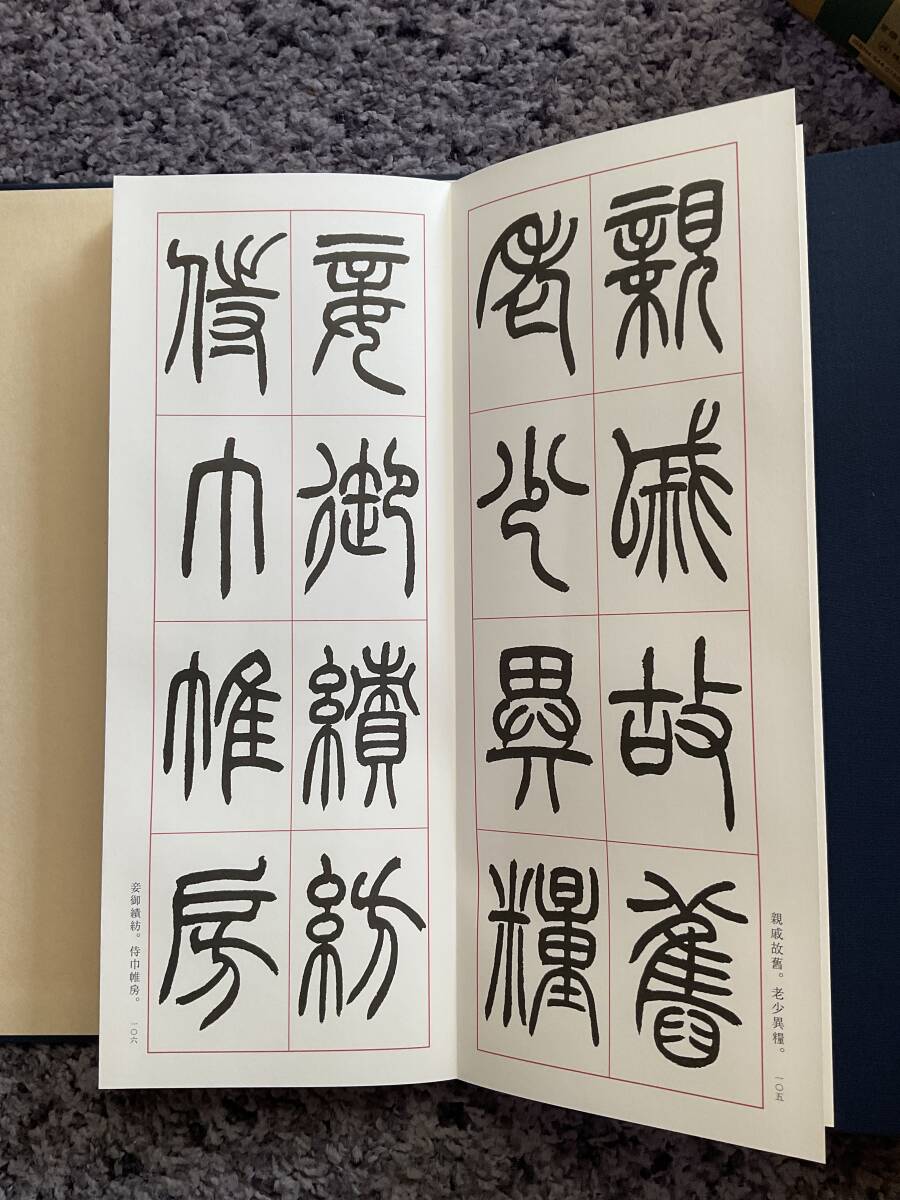 親戚故舊
老少異糧
親戚故舊。老少異糧。
一〇五
妾御績紡
侍巾帷房
妾御績紡。侍巾帷房。
一〇六